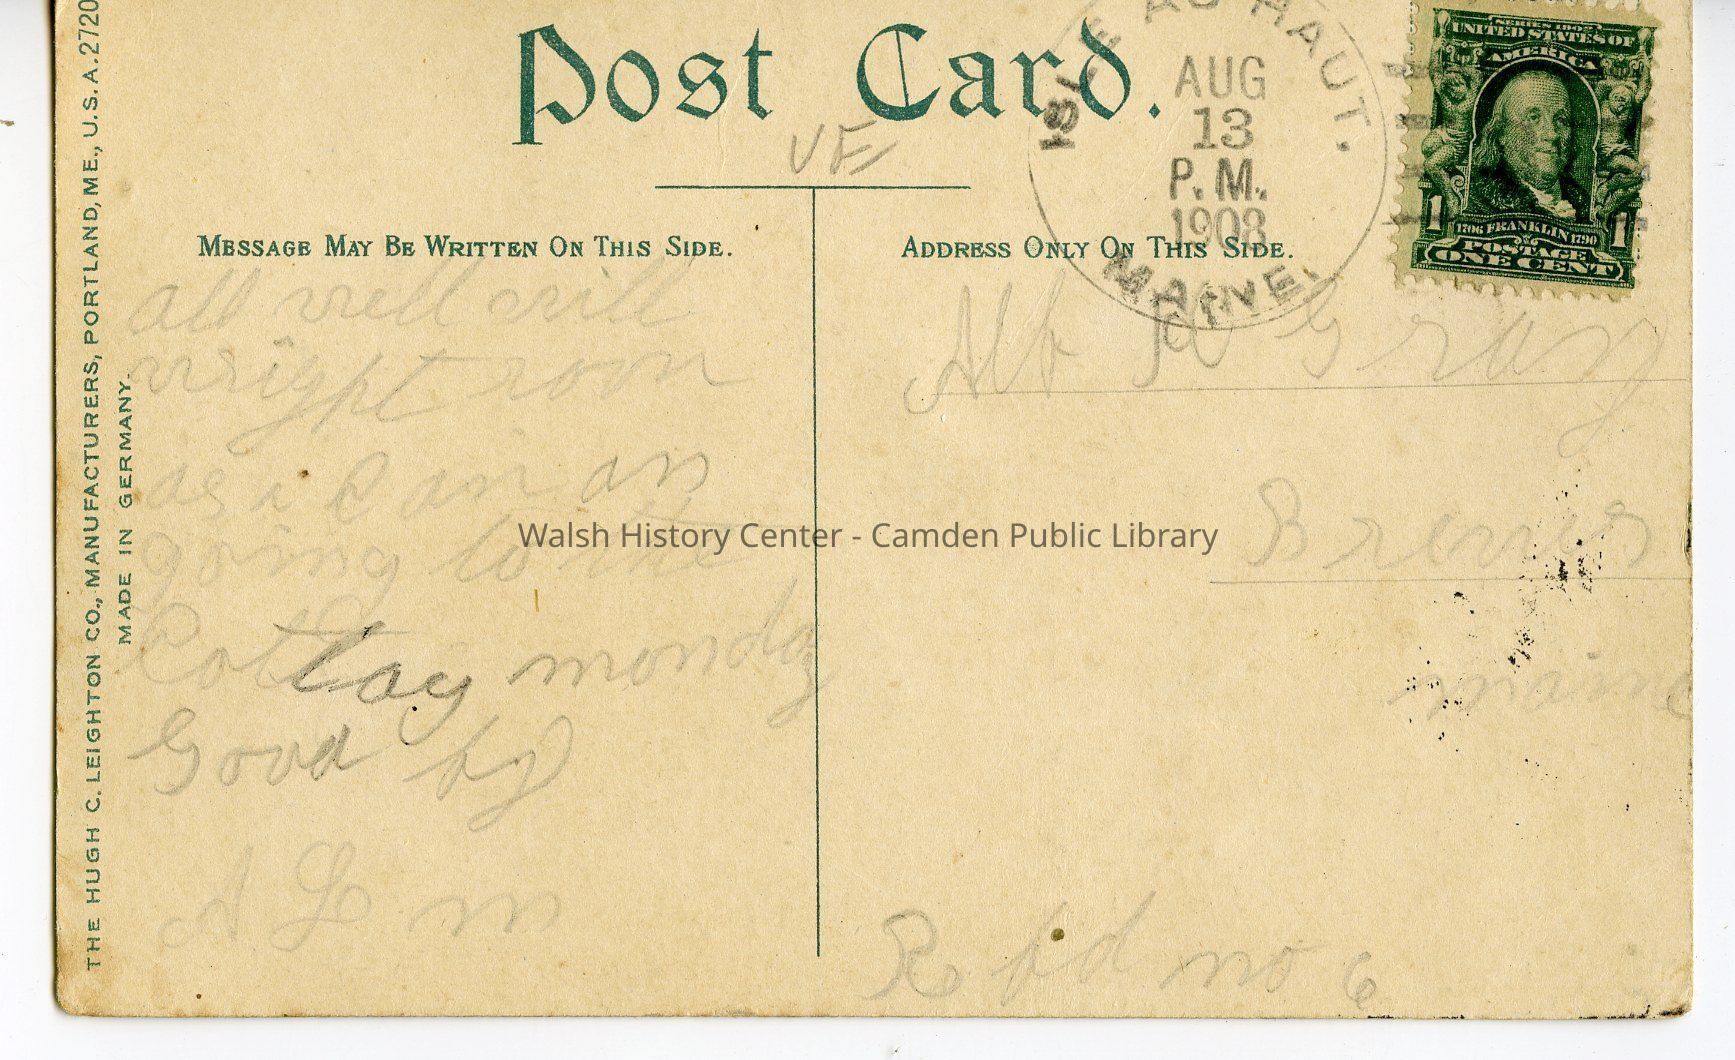 Post Card.
VF
ISLE AU HAUT.
AUG
13
P.M.
1908
MAINE.
SERIES 1902
UNITED STATES OF
AMERICA
1 1
1706 FRANKLIN 1790
POSTAGE
ONE CENT
MESSAGE MAY BE WRITTEN ON THIS SIDE.
ADDRESS ONLY ON THIS SIDE.
all well will
wright soon
as i can an
going to the
monday
Good by
A L m
Gray
maine
R fd no 6
Walsh History Center - Camden Public Library
THE HUGH C. LEIGHTON CO., MANUFACTURERS, PORTLAND, ME., U.S.A. 2720
MADE IN GERMANY.